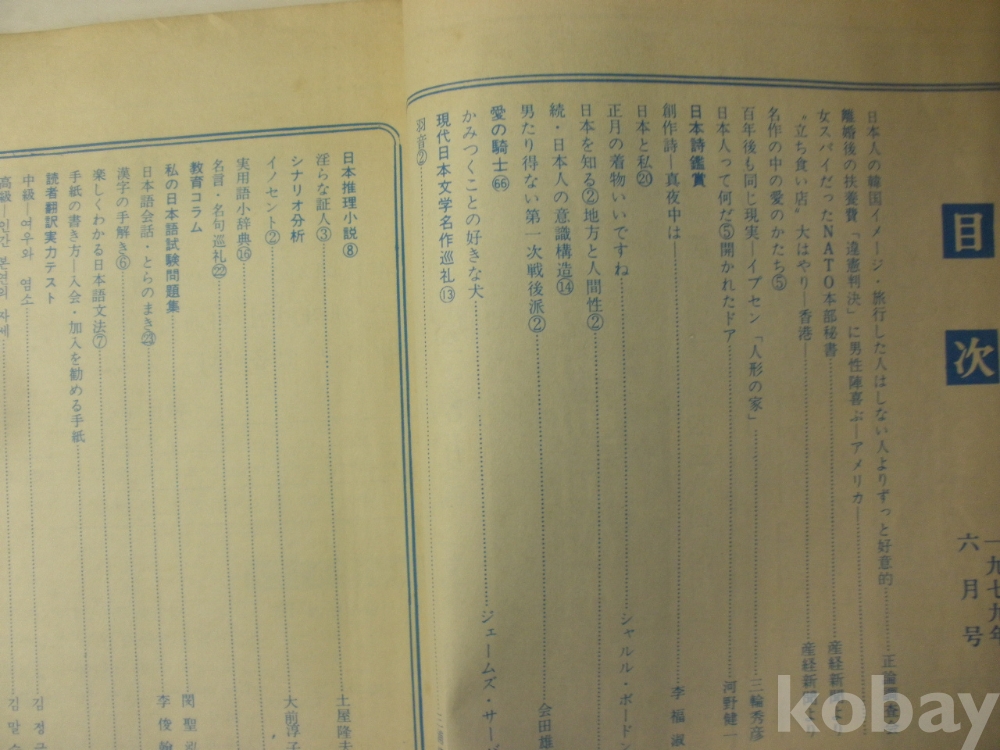 目次
一九七九年
六月号
日本人の韓国イメージ・旅行した人はしない人よりずっと好意的
離婚後の扶養費「違憲判決」に男性陣喜ぶ―アメリカ―
女スパイだったNATO本部秘書 産経新聞
“立ち食い店”大はやり―香港 産経新聞
名作の中の愛のかたち⑤
百年後も同じ現実―イプセン「人形の家」 三輪秀彦
日本人って何だ⑤開かれたドア 河野健一
日本詩鑑賞
創作詩―真夜中は 李福淑
日本と私⑳
正月の着物いいですね シャルル・ボードン
日本を知る②地方と人間性②
続・日本人の意識構造⑭ 会田雄
男たり得ない第一次戦後派②
愛の騎士㊻
かみつくことの好きな犬 ジェームズ・サー
現代日本文学名作巡礼⑬
羽音②
日本推理小説⑧
淫らな証人③ 土屋隆夫
シナリオ分析
イノセント② 大前淳子
実用語小辞典⑯
名言・名句巡礼㉒
教育コラム 閔聖泓
私の日本語試験問題集 李俊
日本語会話・とらのまき㉓
漢字の手解き⑥
楽しくわかる日本語文法⑦
手紙の書き方―入会・加入を勧める手紙
読者翻訳実力テスト
中級―여우와 염소 김정
高級―인간 본연의 자세 김말
kobay